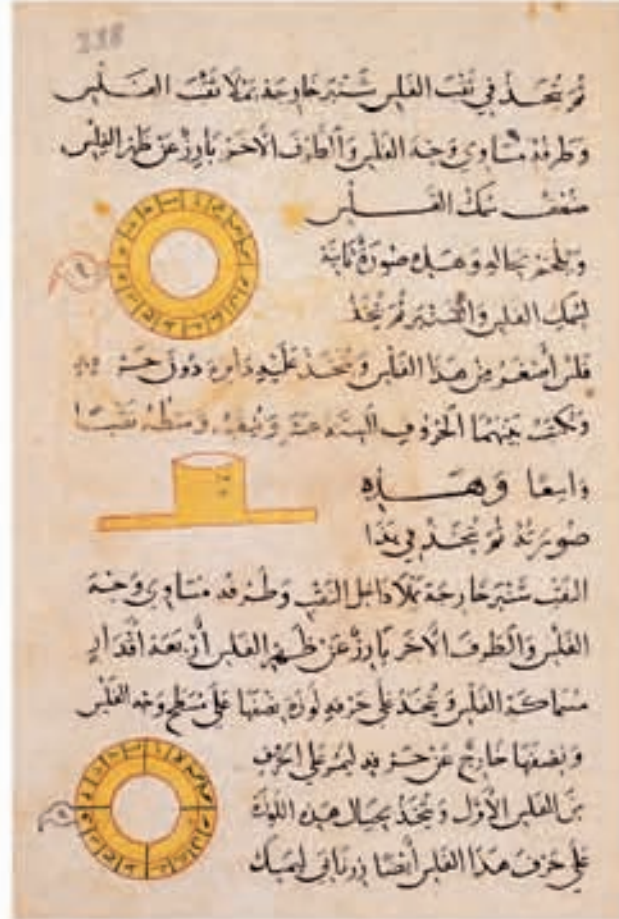 238
ثم تتخذ في ثقب الفلس شنبر خارجه يملا ثقب الفلس
وطرفه مساوي وجه الفلس والطرف الاخر بارز عن ظهر الفلس
ضعف سمك الفلس
ويلحم بحاله وهذه صورة ثانية
لسمك الفلس والشنبر ثم يتخذ
فلس أصغر من هذا الفلس ويتخذ عليه دايره دون حرفه
وتكتب بينهما الحروف الستة عشر وسطه ثقبا
واسعا وهذه
صورته ثم يتخذ في هذا
الثقب شنبر خارجه يملا داخل الثقب وطرفه مساوي وجه
الفلس والطرف الاخر بارز عن ظهر الفلس أربعة أقدار
سماكة الفلس ويتخذ على حرفه لوزه نصفها على سطح وجه الفلس
ونصفها خارج عن حرفه ليمر على احرف
من الفلس الأول ويتخذ بحيال هذه اللوزة
على حرف هذا الفلس أيضا ليمسك